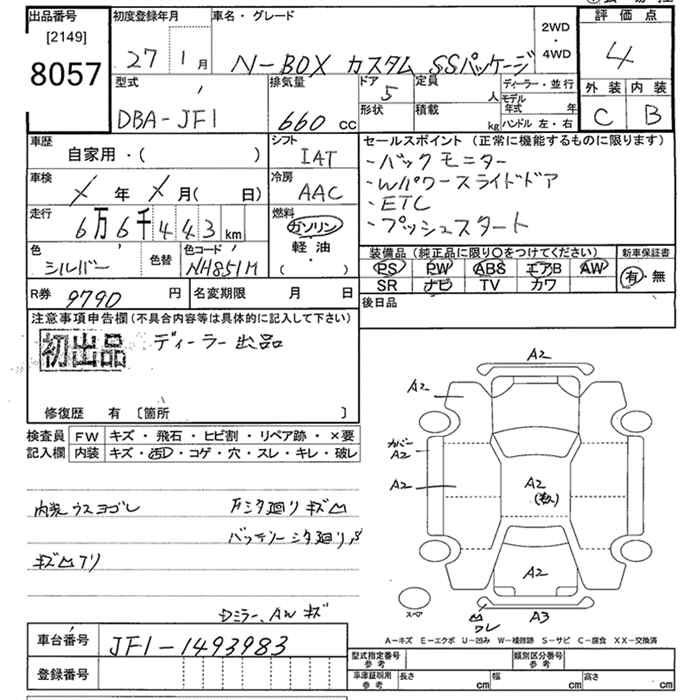 出品番号
[2149]
8057
初度登録年月
27 1月
車名・グレード
N-BOX カスタム SSパッケージ
2WD
・
4WD
評価点
4
外装 内装
C B
型式
DBA-JF1
排気量
660 cc
ドア
5
形状
定員
人
積載
kg
ディーラー・並行
モデル年式 年
ハンドル 左・右
車歴
自家用・( )
シフト
IAT
セールスポイント(正常に機能するものに限ります)
・バックモニター
・Wパワースライドドア
・ETC
・プッシュスタート
車検
年 月( 日)
冷房
AAC
走行
6万6千443km
燃料
ガソリン
軽油・
( )
色
シルバー
色替
色コード
NH851M
装備品(純正品に限り〇をつけてください)
PS PW ABS エアB AW
SR ナビ TV カワ
新車保証書
有・無
R券 9790 円
名変期限 月 日
後日品
注意事項申告欄(不具合内容等は具体的に記入して下さい)
初出品
ディーラー出品
修復歴 有 〔箇所 〕
検査員
記入欄
FW キズ・飛石・ヒビ割・リペア跡・×要
内装 キズ・汚れ・コゲ・穴・スレ・キレ・破レ
内装ウスヨゴレ
下シタ廻リキズ凹
バッテリーシタ廻リ
キズ凹アリ
Dミラー、AWキズ
A2
A2
カバー
A2
A2
A2
A2
スペア
凹
ワレ
A3
A-キズ E-エクボ U-凹み W-補修跡 S-サビ C-腐食 XX-交換済
車台番号 JF1-1493983
登録番号
型式指定番号
参考
類別区分番号
参考
車庫証明用
参考
長さ cm
幅 cm
高さ cm